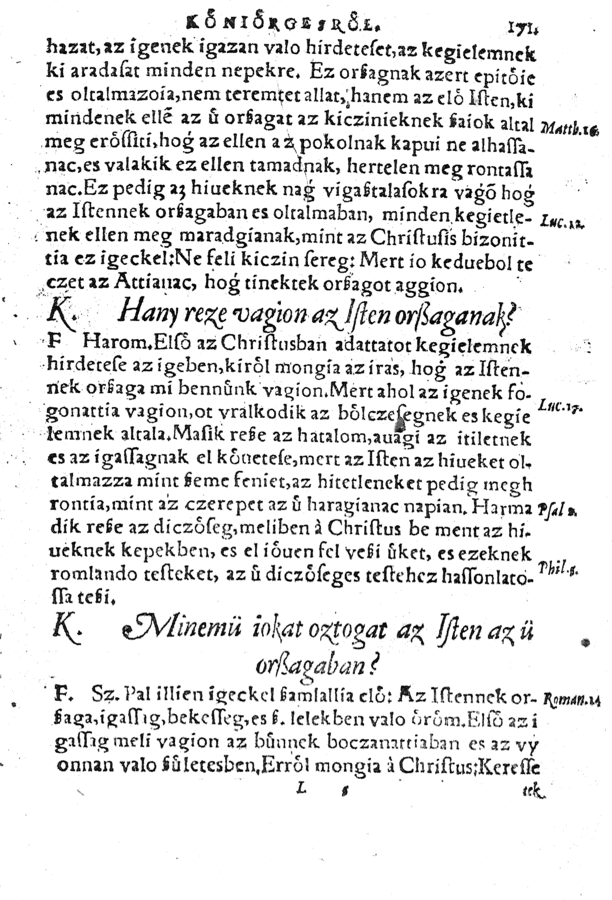 KŐNIŐRGESRŐL. 171.
hazat, az igenek igazan valo hirdeteset, az kegielemnek
ki aradasat minden nepekre. Ez orßagnak azert epitőie
es oltalmazoia, nem teremtet allat, hanem az elő Iſten, ki
mindenek ellē az ů orßagat az kiczinieknek ßaiok altal
meg erőſſiti, hoǵ az ellen az pokolnak kapui ne alhaſſa-
Matth. 16.
nac, es valakik ez ellen tamadnak, hertelen meg rontaſſa
nac. Ez pedig az hiueknek naǵ vigaßtalasokra vagō hoǵ
az Iſtennek orßagaban es oltalmaban, minden kegietle-
Luc. 12.
nek ellen meg maradgianak, mint az Chriſtusis bizonit-
tia ez igeckel: Ne feli kiczin sereg: Mert io keduebol te
czet az Attianac, hoǵ tinektek orßagot aggion.
K. Hany reze vagion az Iſten orßaganak?
F Harom. Elſő az Chriſtusban adattatot kegielemnek
hirdetese az igeben, kiről mongia az iras, hoǵ az Iſten-
nek orßaga mi bennůnk vagion. Mert ahol az igenek fo-
gonattia vagion, ot vralkodik az bőlczeſegnek es kegie
Luc. 17.
lemnek altala. Masik reße az hatalom, auagi az itiletnek
es az igaſſagnak el kőuetese, mert az Iſten az hiueket ol-
talmazza mint ßeme feniet, az hitetleneket pedig megh
rontia, mint az czerepet az ů haragianac napian. Harma
Pſal 2.
dik reße az diczőſeg, meliben à Chriſtus be ment az hi-
ueknek kepekben, es el iőuen fel veßi ůket, es ezeknek
romlando teſteket, az ů diczőſeges teſtehez haſſonlato-
Phil. 3.
ſſa teßi.
K. Minemü iokat oztogat az Iſten az ü
orßagaban?
F. Sz. Pal illien igeckel ßamlallia elő: Az Iſtennek or-
Roman. 14
ßaga, igaſſig, bekeſſeg, es ß. lelekben valo őrőm. Elſő az i
gaſſag meli vagion az bůnnek boczanattiaban es az vy
onnan valo ßůletesben, Erről mongia à Chriſtus; Kereſſe
L 5 tek